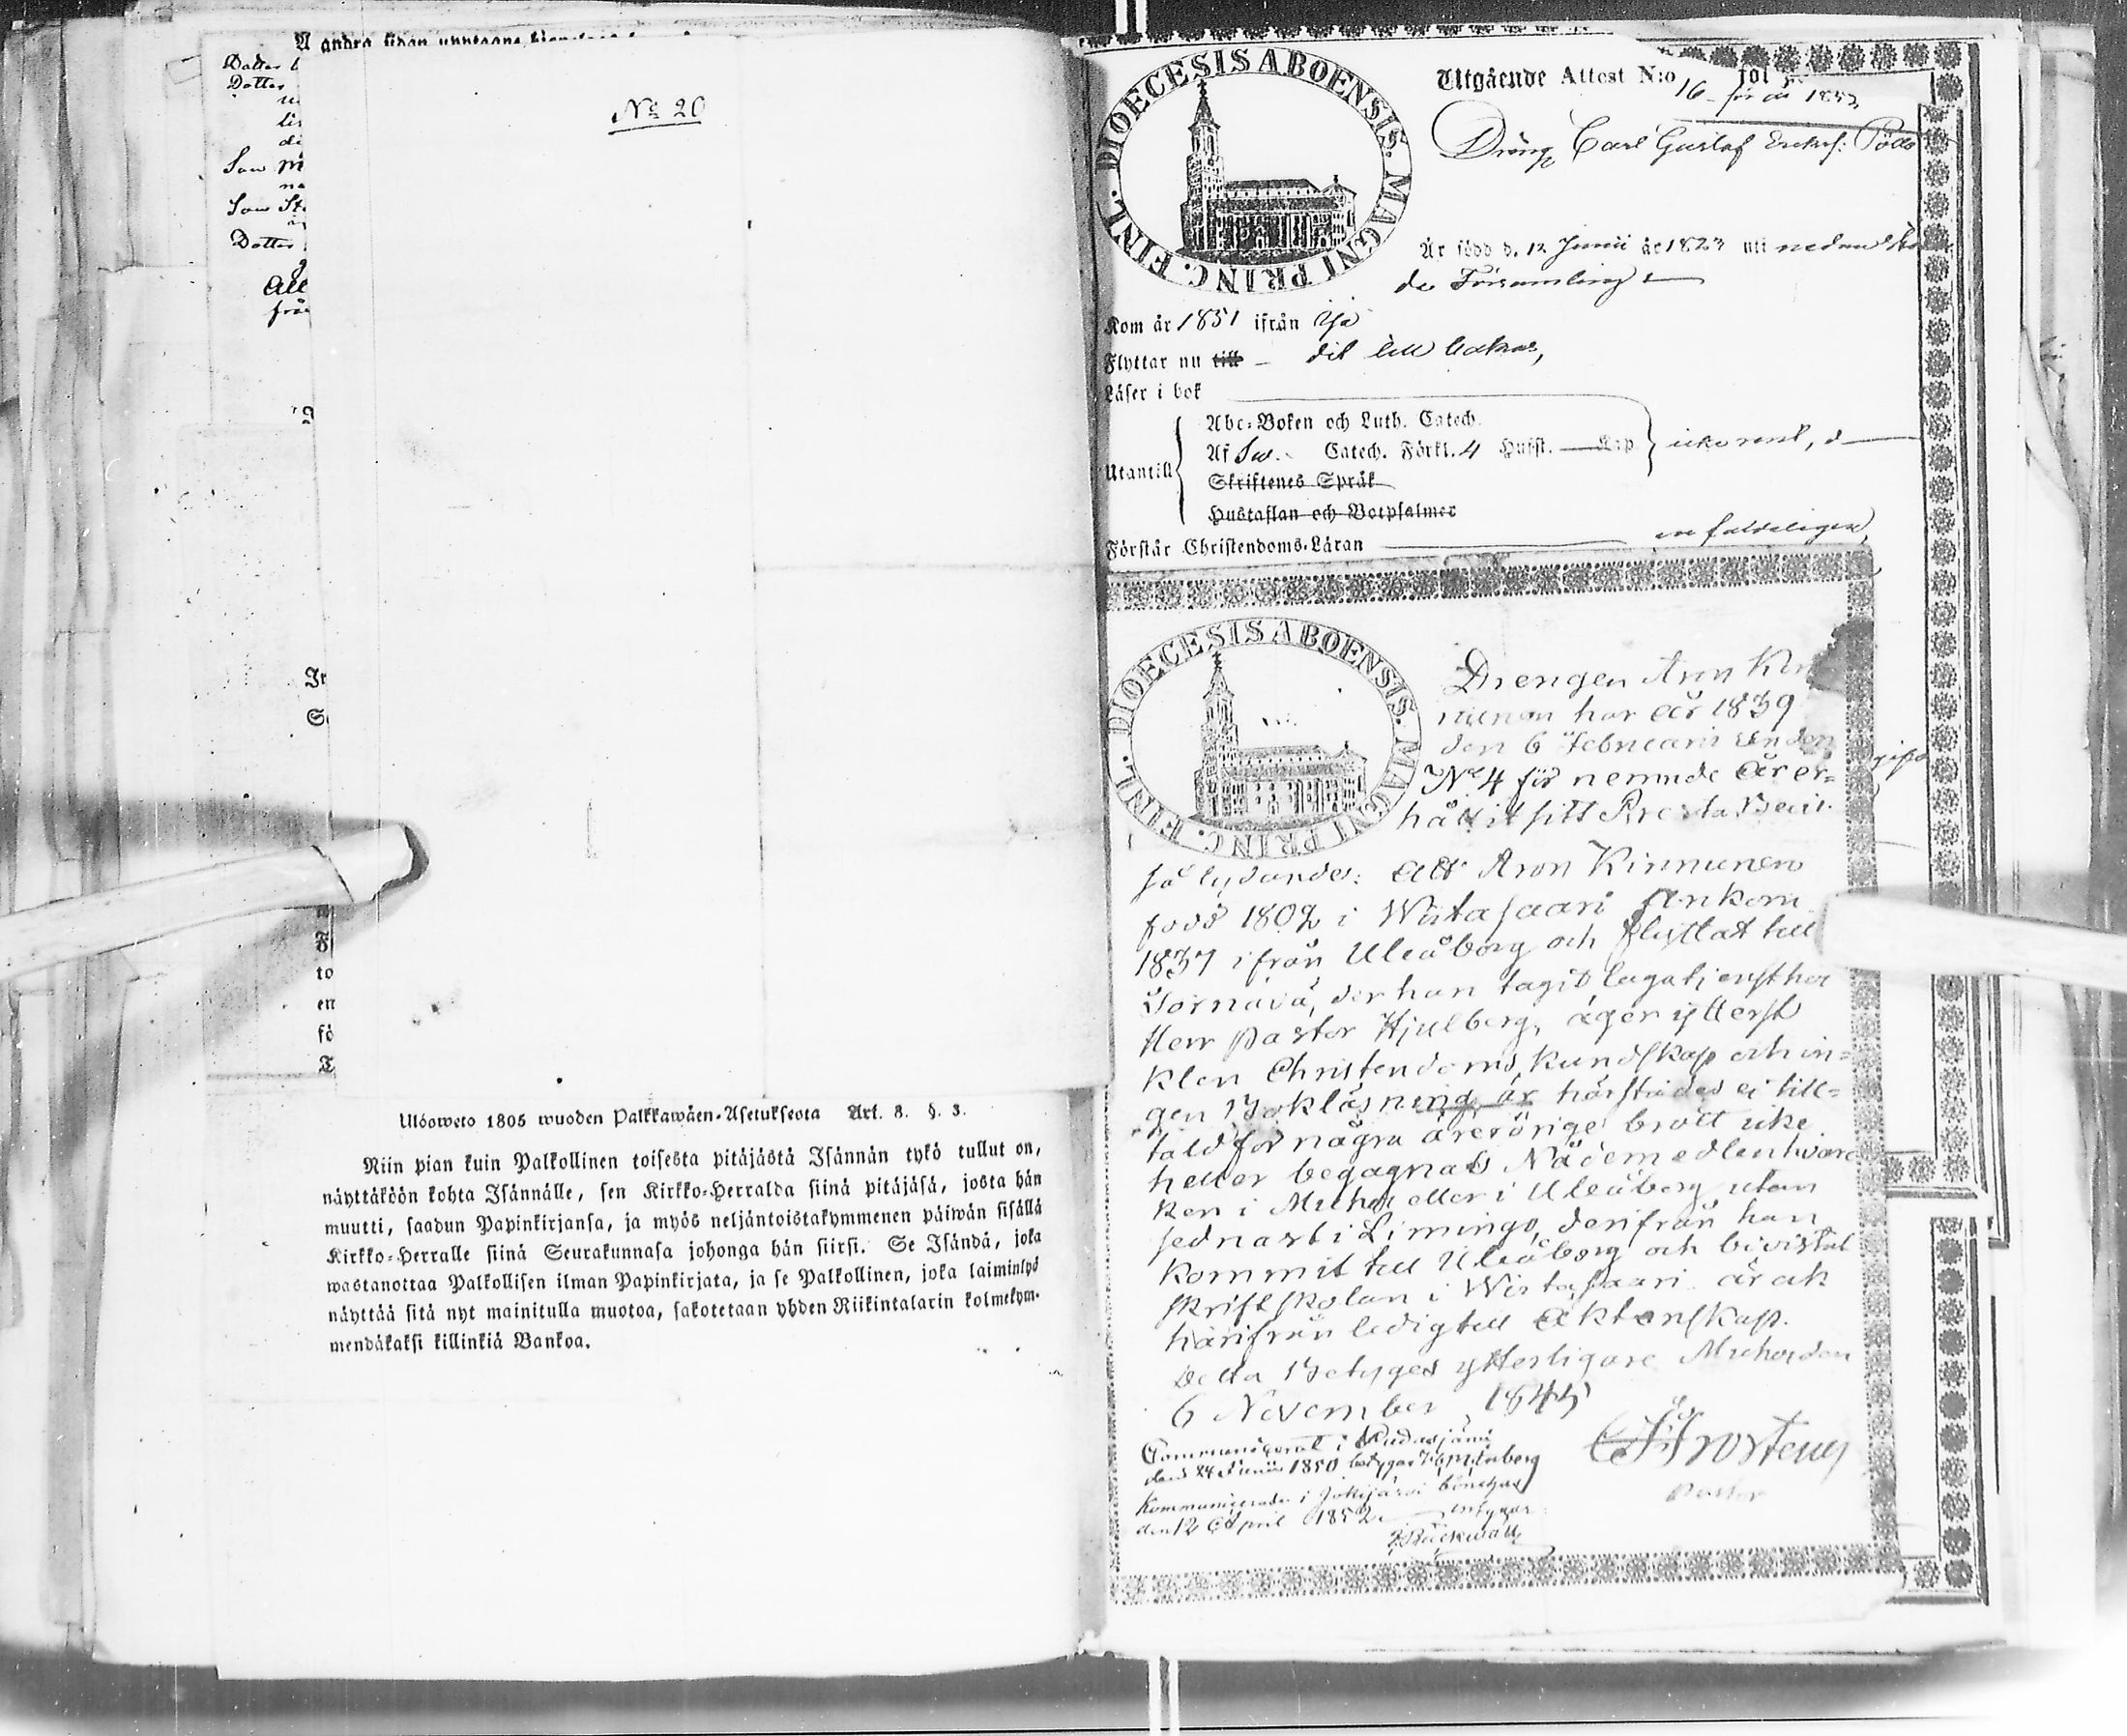 Dotter
Dotter
Son
Son
Dotter
All
från
No 20
Ulosweto 1805 wuoden Palkkawäen-Asetuksesta Art. 8. §. 3.
Niin pian kuin Palkollinen toisesta pitäjästä Isännän tykö tullut on,
näyttäköön kohta Isännälle, sen Kirkko-Herralda siinä pitäjäsä, josta hän
muutti, saadun Papinkirjansa, ja myös neljäntoistakymmenen päiwän sisällä
Kirkko-Herralle siinä Seurakunnasa johonga hän siirsi. Se Isändä, joka
wastanottaa Palkollisen ilman Papinkirjata, ja se Palkollinen, joka laiminlyö
näyttää sitä nyt mainitulla muotoa, sakotetaan yhden Riikintalarin kolmekym-
mendäkaksi killinkiä Bankoa.
DIOECESIS ABOENSIS. MAGNI PRINC. FINL.
Utgående Attest N:o 16 för år 1852
Dräng Carl Gustaf
Är född d. 12 Junii år 1823 uti
de Församling
Kom år 1851 ifrån Ijo
Flyttar nu till dit
Läser i bok
Utantill
Abc-Boken och Luth. Catech.
Af Sw. Catech. Förkl. 4 Hufst. Kap
Skriftenes Språk
Hustaflan och Botpsalmer
Förstår Christendoms-Läran
DIOECESIS ABOENSIS. MAGNI PRINC. FINL.
Drengen Aron Kin
nunen har år 1839
den 6 Februarii under
No 4 för nemnde År er-
hållit sitt Presta Bevis
så lydandes: att Aron Kinnunen
född 1802 i Wistasaari Ankom
1837 ifrån Uleåborg och flyttat till
der han tagit laga tjenst hos
Herr Pastor Hjulberg, äger ytterst
klen Christendoms kundskap och in-
gen Bokläsning är härstädes ei till-
tald för några ärerörige brott icke
heller begagnat Nådemedlen hvar
ken i Muhos eller i Uleåborg utan
sednast i Limingo, derifrån han
kommit till Uleåborg och bivistat
skriftskolan i Wistasaari är ock
härifrån ledig till Äktenskap.
Detta Betyges ytterligare Muhos den
6 November 1845
Frosterus
Pastor
Communicerat i Pudasjärvi
den 24 Junii 1850 betygar
Kommunicerade i Jokijärvi
den 12 April 1852 intygar